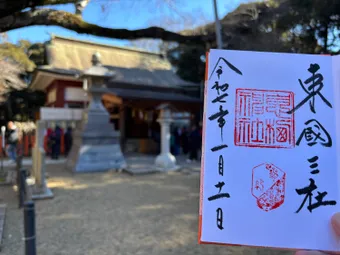 東国三社
息栖神社
令和七年一月十一日